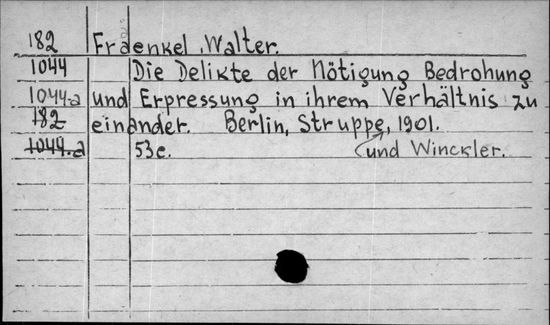 182 Fraenkel, Walter.
1044 Die Delikte der Nötigung Bedrohung
1044-a und Erpressung in ihrem Verhältnis zu
182 einander. Berlin, Struppe, 1901.
1044-a 53c. und Winckler.